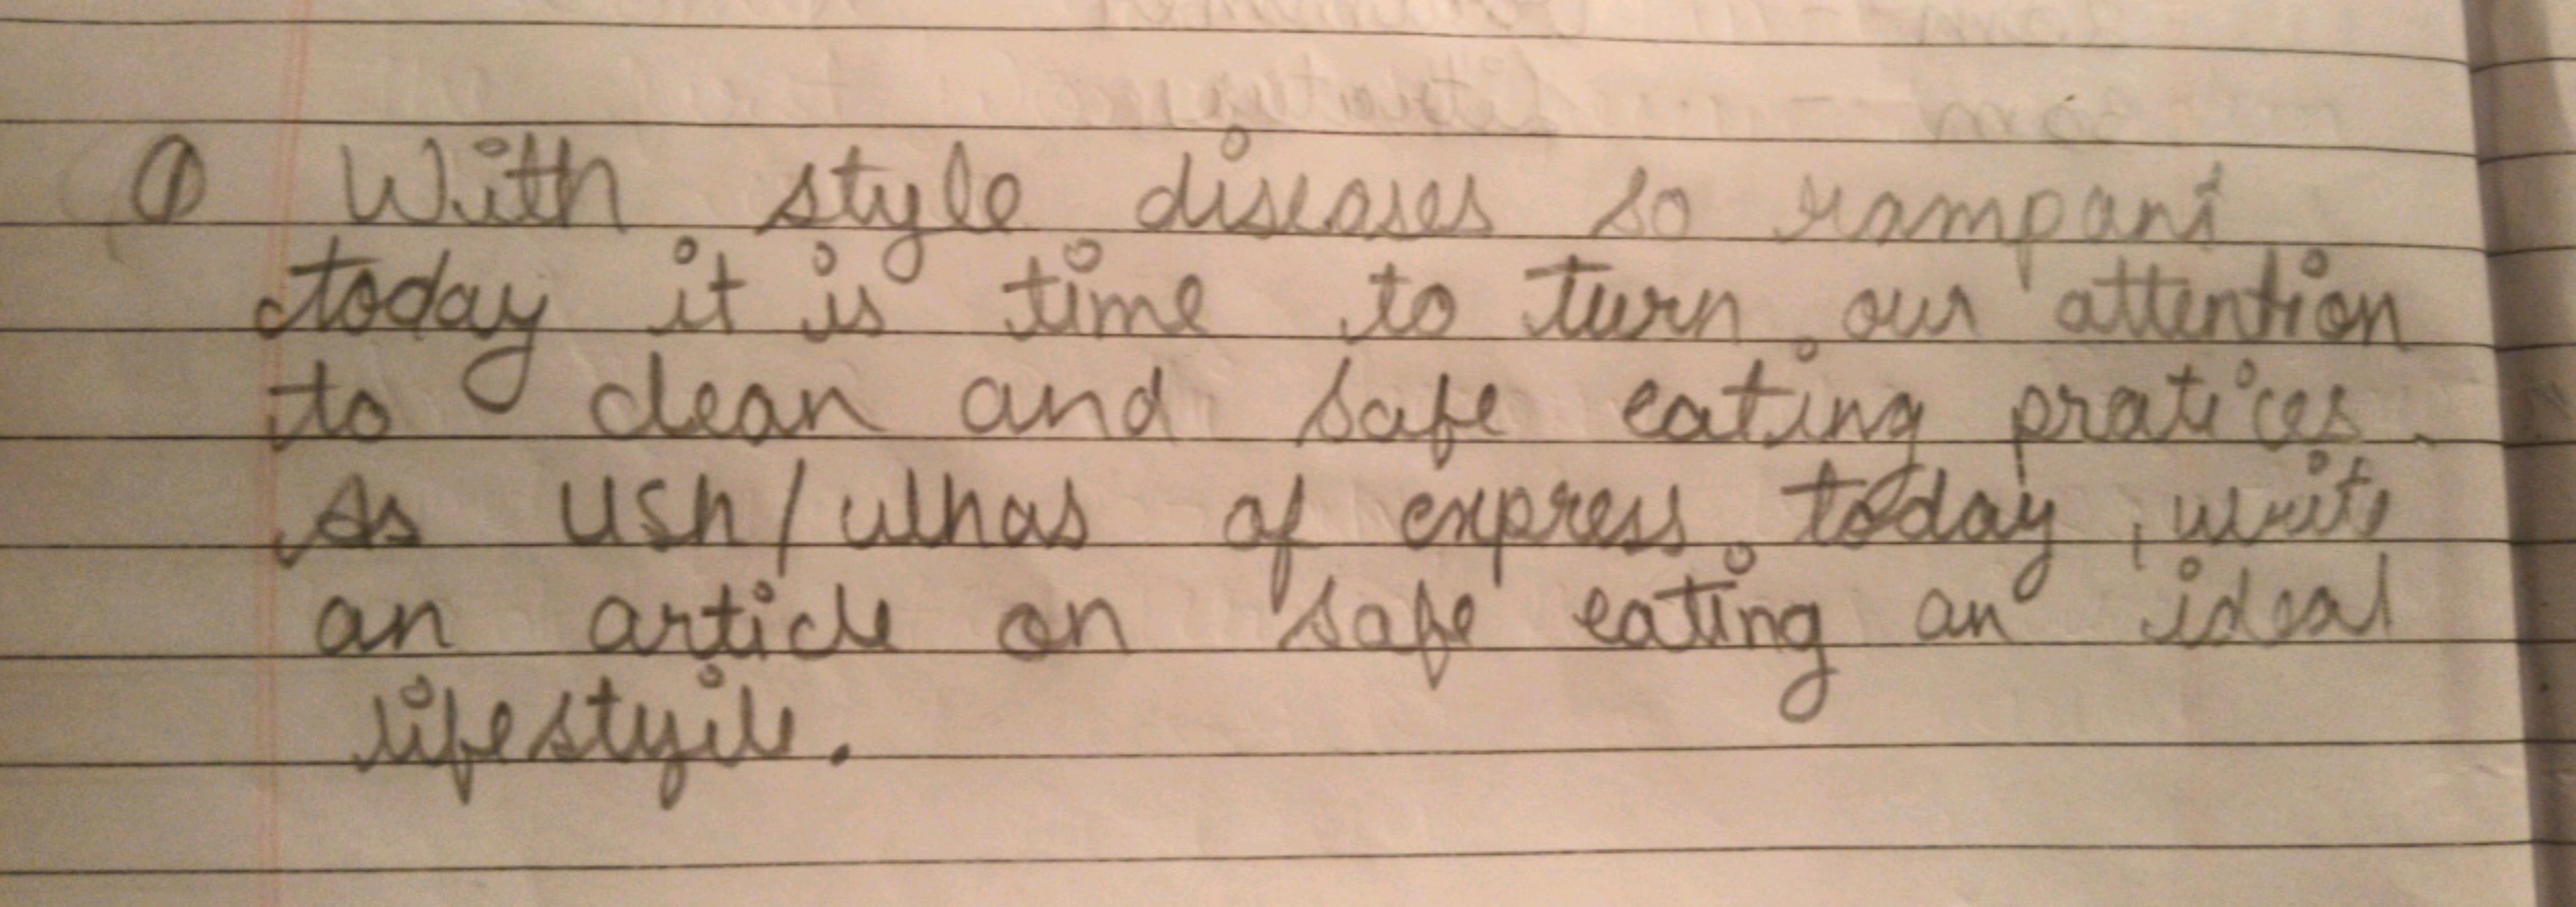 ① With style diseases so rampant
today it is time to turn our attention
to clean and safe eating pratices.
As USh/ulhas of express today, write
an article on safe eating an ideal
lifestyile.